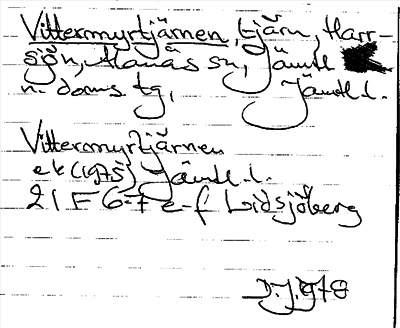 Vittermyrtjärnen, tjärn, Harr-
sjön, Alanäs sn, Jämtl
n. doms. tg, Jämtl.l.
Vittermyrtjärnen
ek (1975) Jämtl.l.
21 F 6-7 e-f Lidsjöberg
D.J. 1978